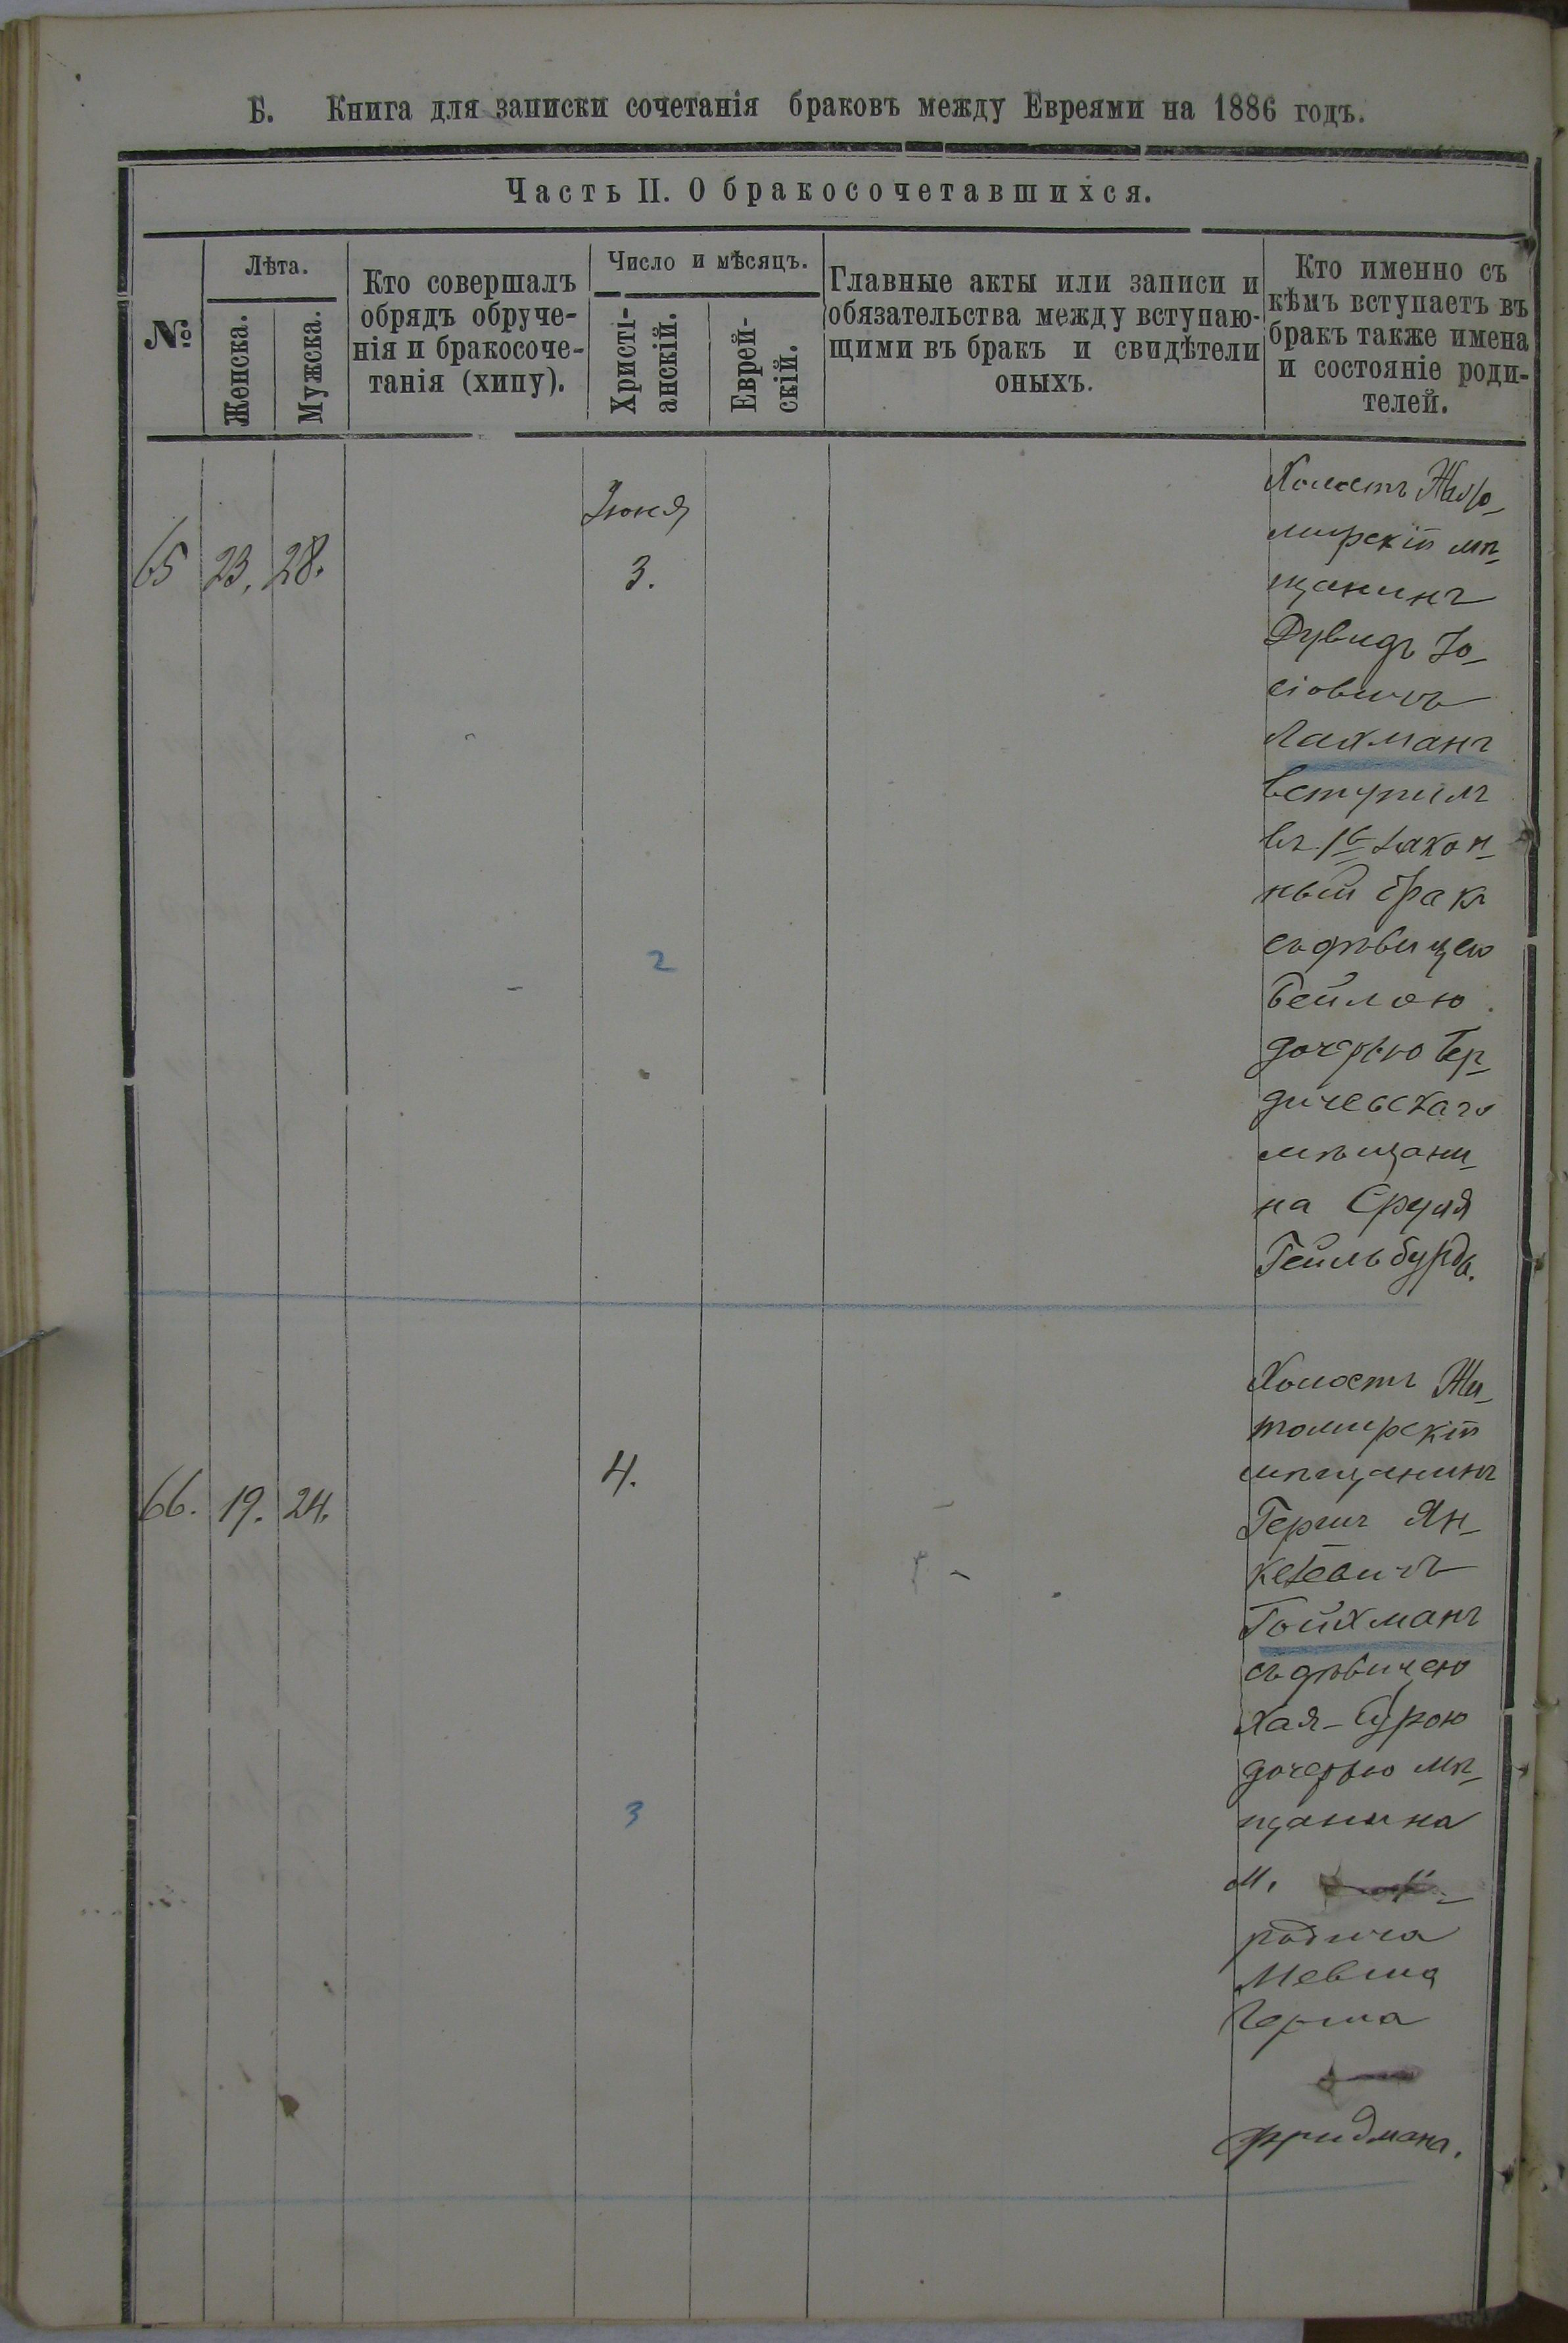 Б. Книга для записки сочетанія браковъ между Евреями на 1886 годъ.
Часть II. О бракосочетавшихся.
№
Лѣта.
Женска.
Мужска.
Кто совершалъ
обрядъ обруче-
нія и бракосоче-
танія (хипу).
Число и мѣсяцъ.
Христі-
анскій.
Еврей-
скій.
Главные акты или записи и
обязательства между вступаю-
щими въ бракъ и свидѣтели
оныхъ.
Кто именно съ
кѣмъ вступаетъ въ
бракъ также имена
и состояніе роди-
телей.
65 23. 28.
Іюня
3.
2
Холостъ
мирскій мѣ-
щанинъ
Дувидъ Іо-
сіовичъ
Лахманъ
вступилъ
въ 1й закон-
ный бракъ
съ дѣвицею
Бейлою
дочерью Бер-
дичевскаго
мѣщани-
на Сруля
Гейльбурда.
66. 19. 24.
4.
3
Холостъ Жи-
томирскій
мѣщанинъ
Гершъ Ян-
келевичъ
Гойхманъ
съ дѣвицею
Хая-Сурою
дочерью мѣ-
щанина
м.
Герша
Фридмана.